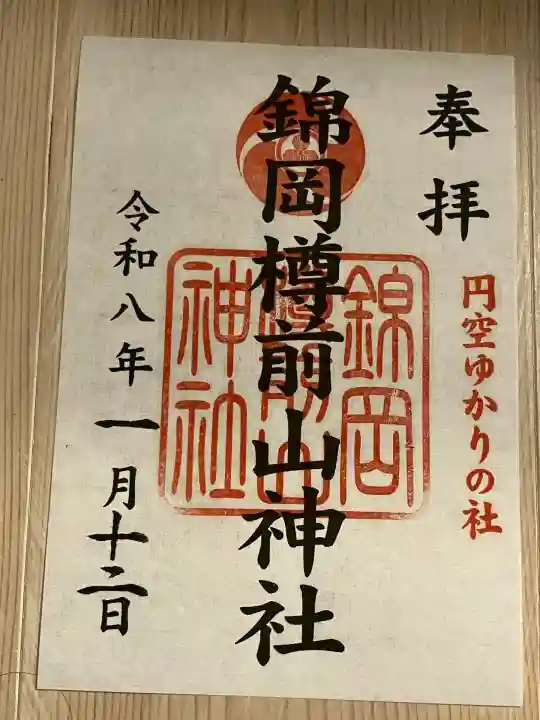 奉拝
円空ゆかりの社
錦岡樽前山神社
錦岡樽前山神社
令和八年一月十二日